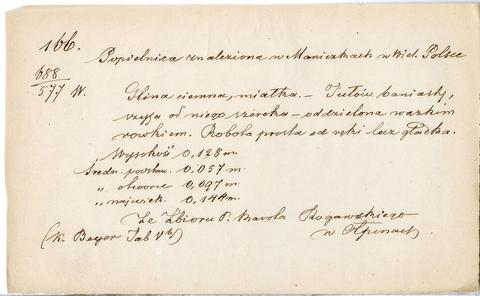 166.
Popielnica znaleziona w Maniczkach w Wiel. Polsce
688
577 W.
Glina ciemna, miałka. — Tułów baniasty,
szyja od niego szeroka — oddzielona wązkim
rowkiem. Robota prosta od ręki lecz gładka.
Wysokość 0,128 m.
Średn. podstaw. 0,057 m.
„ otworu 0,097 m.
„ najwięk. 0,144 m.
Ze Zbioru P. Karola Rogawskiego
(K. Beyer Tab V b)
w Ołpinach.